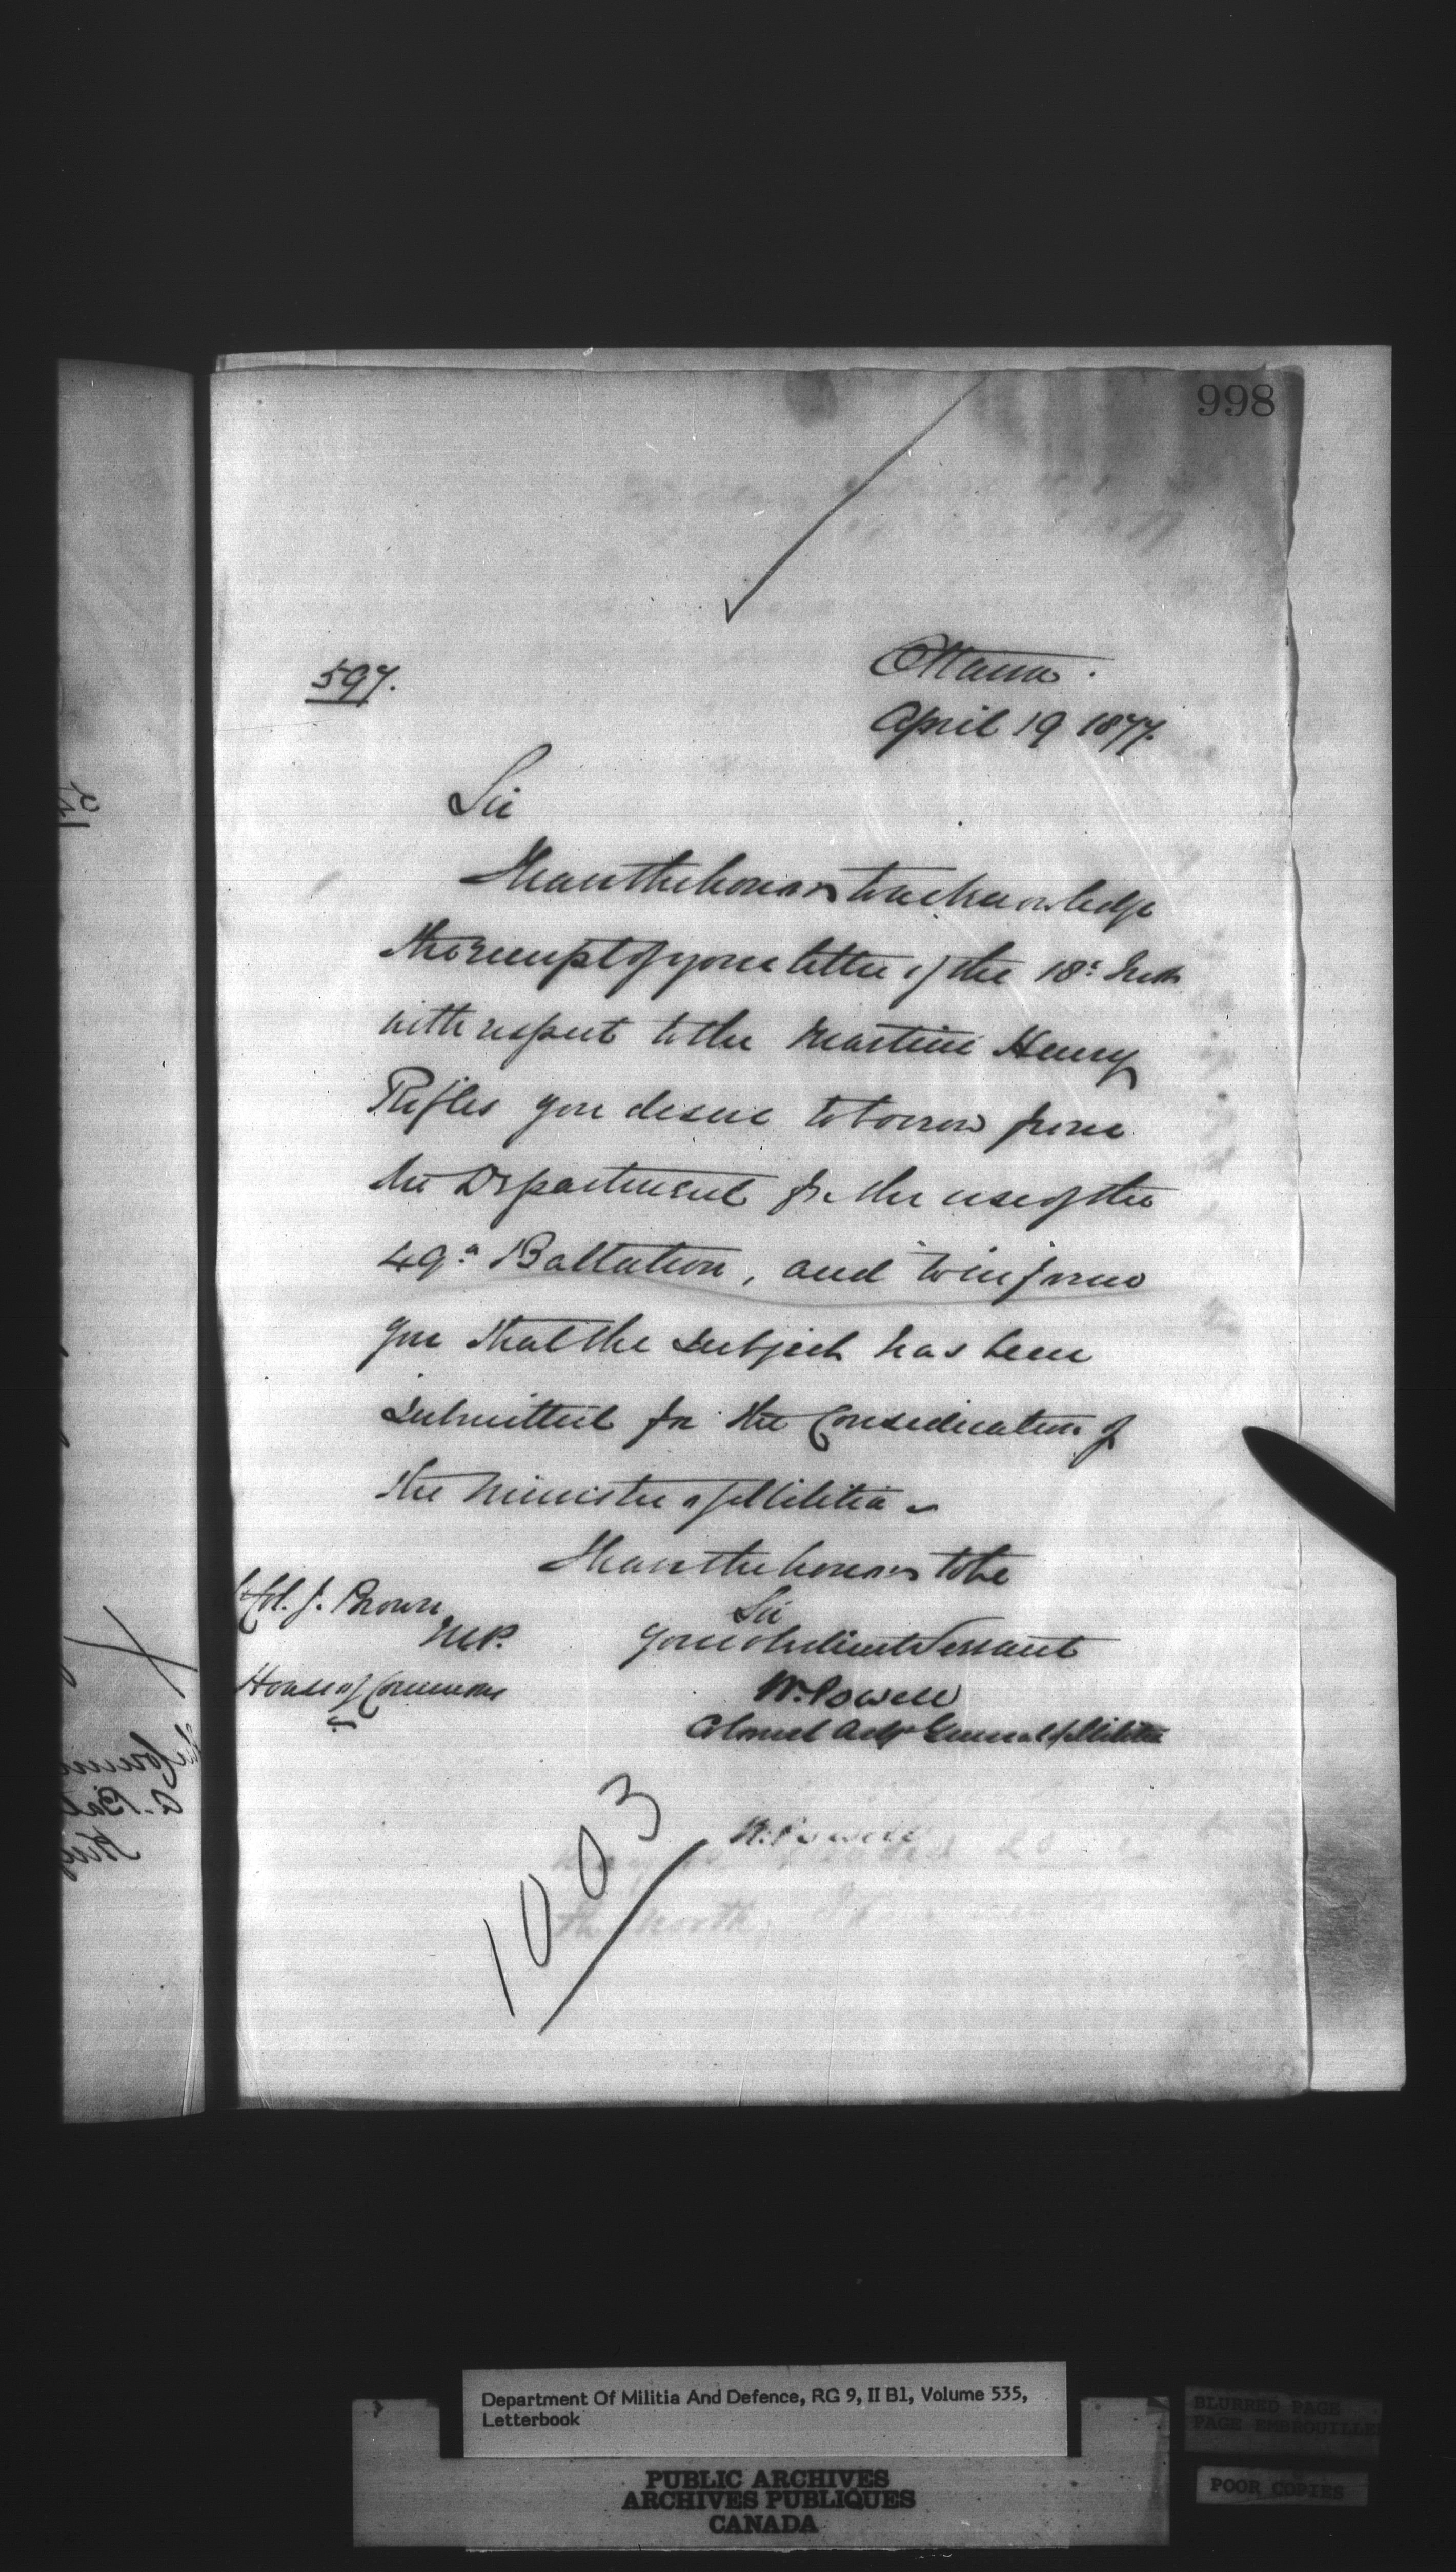 998
597.
Ottawa.
April 19 1877.
Sir
I have the honor to acknowledge
the receipt of your letter of the 18th Inst
with respect to the Martini Henry
Rifles you desire to borrow from
the Department for the use of the
49th Battalion, and to inform
you that the subject has been
submitted for the Consideration of
the Minister of Militia
I have the honor to be
Sir
Your obedient Servant
W. Powell
Colonel Adjt General of Militia
Lt Col. J. Brown
M.P.
House of Commons
1003
W. Powell
the North,
Department Of Militia And Defence, RG 9, II B1, Volume 535,
Letterbook
PUBLIC ARCHIVES
ARCHIVES PUBLIQUES
CANADA
BLURRED PAGE
PAGE EMBROUILLEE
POOR COPIES